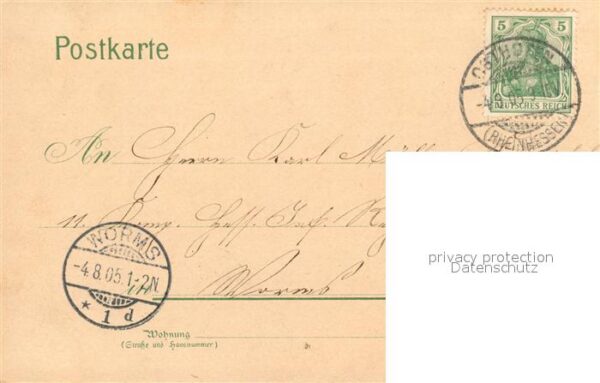 Postkarte
5 5
DEUTSCHES REICH
OSTHOFEN
-4.8.05
(RHEINHESSEN)
An Herrn Karl Müll
11. Komp. Hess. Inf. Reg
WORMS
-4.8.05.1-2N.
* 1 d
Worms
privacy protection
Datenschutz
Wohnung
(Straße und Hausnummer)